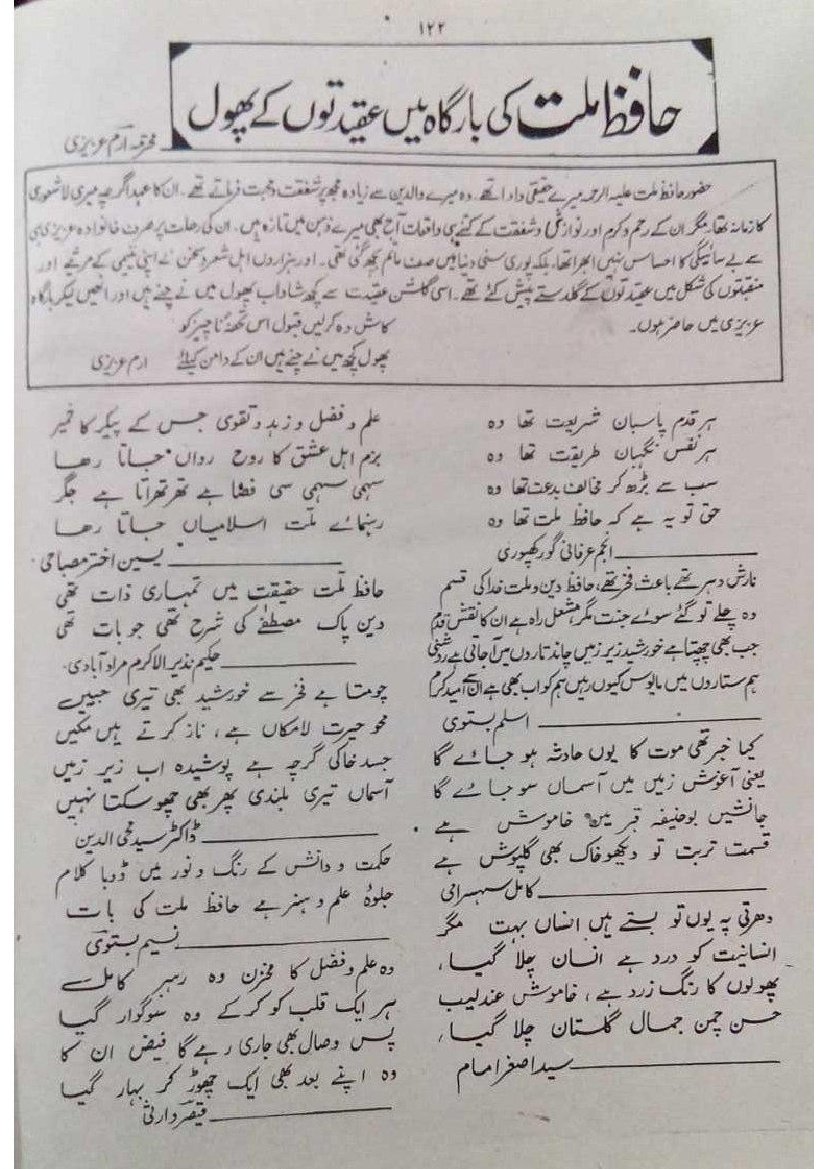 ۱۲۲
حافظ ملت کی بارگاہ میں عقیدتوں کے پھول
ارم عزیزی
حضور حافظ ملت علیہ الرحمہ میرے حقیقی دادا تھے۔ وہ میرے والدین سے زیادہ مجھ پر شفقت و محبت فرماتے تھے۔ ان کا عہد اگرچہ میری لاشعوری
کا زمانہ تھا، مگر ان کے رحم و کرم اور نوازش و شفقت کے کتنے ہی واقعات آج بھی میرے ذہن میں تازہ ہیں۔ ان کی رحلت پر صرف خانوادہ عزیزی ہی
سے بے سائیگی کا احساس نہیں ابھرا تھا، بلکہ پوری سنی دنیا میں صف ماتم بچھ گئی تھی۔ اور ہزاروں اہل شعر و سخن نے اپنی یتیمی کے مرثیے اور
منقبتوں کی شکل میں عقیدتوں کے گلدستے پیش کئے تھے۔ اسی گلشن عقیدت سے کچھ شاداب پھول میں نے چنے ہیں اور انھیں لیکر بارگاہ
عزیزی میں حاضر ہوں۔
کاش وہ کرلیں قبول اس تحفۂ ناچیز کو
پھول کچھ میں نے چنے ہیں ان کے دامن کیلئے ارم عزیزی
ہر قدم پاسبان شریعت تھا وہ
ہر نفس نگہبان طریقت تھا وہ
سب سے بڑھ کر مخالف بدعت تھا وہ
حق تو یہ ہے کہ حافظ ملت تھا وہ
انجم عرفانی گورکھپوری
نازش دہر تھے باعث فخر تھے، حافظ دین و ملت خدا کی قسم
وہ چلے تو گئے سوئے جنت مگر مشعل راہ ہے ان کا نقش قدم
جب بھی چھپتا ہے خورشید زیر زمیں چاند تاروں میں آجاتی ہے روشنی
ہم ستاروں میں مایوس کیوں رہیں ہم کو اب بھی ہے ان سے امید کرم
اسلم بستوی
کیا خبر تھی موت کا یوں حادثہ ہو جائے گا
یعنی آغوش زمیں میں آسماں سو جائے گا
جانشیں بوحنیفہ قبر میں خاموش ہے
قسمت تربت تو دیکھو خاک بھی گلپوش ہے
کامل سہسرامی
دھرتی پہ یوں تو بستے ہیں انساں بہت مگر
انسانیت کو درد ہے انسان چلا گیا،
پھولوں کا رنگ زرد ہے، خاموش عندلیب
حسن چمن جمال گلستاں چلا گیا،
سید اصغر امام
علم و فضل و زہد و تقوی جس کے پیکر کا خمیر
بزم اہل عشق کا روح رواں جاتا رہا
سہمی سہمی سی فضا ہے تھرتھراتا ہے جگر
رہنمائے ملت اسلامیاں جاتا رہا
یسین اختر مصباحی
حافظ ملت حقیقت میں تمہاری ذات تھی
دین پاک مصطفےٰ کی شرح تھی جو بات تھی
حکیم نذیر الاکرم مراد آبادی
چومتا ہے فخر سے خورشید بھی تیری جبیں
محو حیرت لامکاں ہے، ناز کرتے ہیں مکیں
جسد خاکی گرچہ ہے پوشیدہ اب زیر زمیں
آسماں تیری بلندی پھر بھی چھو سکتا نہیں
ڈاکٹر سید محی الدین
حکمت و دانش کے رنگ و نور میں ڈوبا کلام
جلوۂ علم و ہنر ہے حافظ ملت کی بات
نسیم بستوی
وہ علم و فضل کا مخزن وہ رہبر کامل
ہر ایک قلب کو کرکے وہ سوگوار گیا
پس وصال بھی جاری رہے گا فیض ان کا
وہ اپنے بعد بھی ایک چھوڑ کر بہار گیا
قیصر وارثی